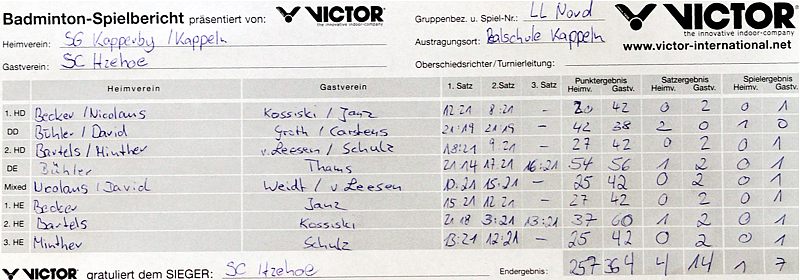 Badminton-Spielbericht präsentiert von: VICTOR the innovative indoor-company Gruppenbez. u. Spiel-Nr.: LL Nord VICTOR the innovative indoor-company
Heimverein: SG Kopperby / Kappeln Austragungsort: Balschule Kappeln www.victor-international.net
Gastverein: SC Itzehoe Oberschiedsrichter/Turnierleitung:
Heimverein Gastverein 1. Satz 2. Satz 3. Satz Punktergebnis Heimv. Gastv. Satzergebnis Heimv. Gastv. Spielergebnis Heimv. Gastv.
1. HD Becker / Nicolaus Kossiski / Janz 12 21 8:21 – 20 42 0 2 0 1
DD Bühler / David Groth / Carstens 21:19 21:19 – 42 38 2 0 1 0
2. HD Bartels / Minther v. Leesen / Schulz 18:21 9:21 – 27 42 0 2 0 1
DE Bühler Thams 21 14 17 21 16:21 54 56 1 2 0 1
Mixed Nicolaus / David Weidt / v. Leesen 10:21 15:21 – 25 42 0 2 0 1
1. HE Becker Janz 15 21 12 21 – 27 42 0 2 0 1
2. HE Bartels Kossiski 21 18 3:21 13:21 37 60 1 2 0 1
3. HE Minther Schulz 13:21 12:21 – 25 42 0 2 0 1
VICTOR gratuliert dem SIEGER: SC Itzehoe Endergebnis: 257 364 4 14 1 7